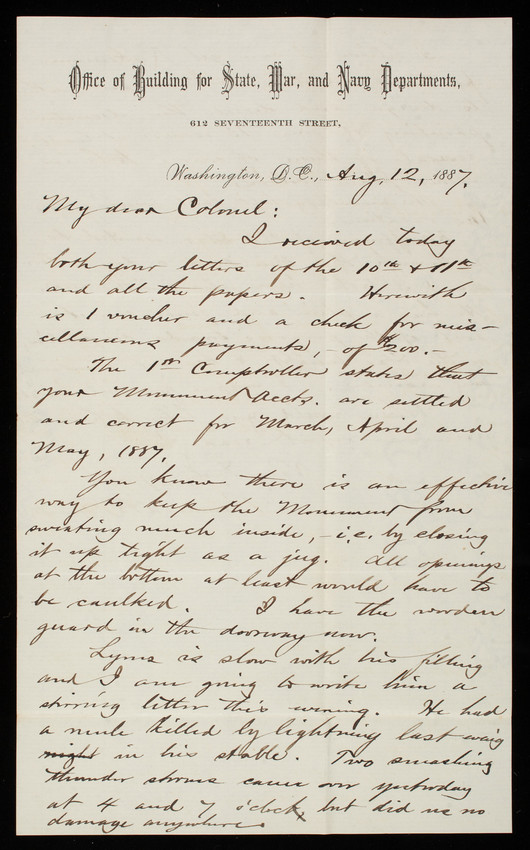 Office of Building for State, War, and Navy Departments,
612 SEVENTEENTH STREET,
Washington, D.C., Aug, 12, 1887.
My dear Colonel:
I received today
both your letters of the 10th & 11th
and all the papers. Herewith
is 1 voucher and a check for mis-
cellaneous payments, - of $200.-
The 1st Comptroller states that
your Monument accts. are settled
and correct for March, April and
May, 1887.
You know there is an effective
way to keep the Monument from
sweating much inside, - i.e. by closing
it up tight as a jug. All openings
at the bottom at least would have to
be caulked. I have the wooden
guard in the doorway now.
Lyms is slow with his filling
and I am going to write him a
stirring letter this evening. He had
a mule killed by lightning last evnig
night in his stable. Two smashing
thunder storms came over yesterday
at 4 and 7 o'clock, but did us no
damage anywhere.